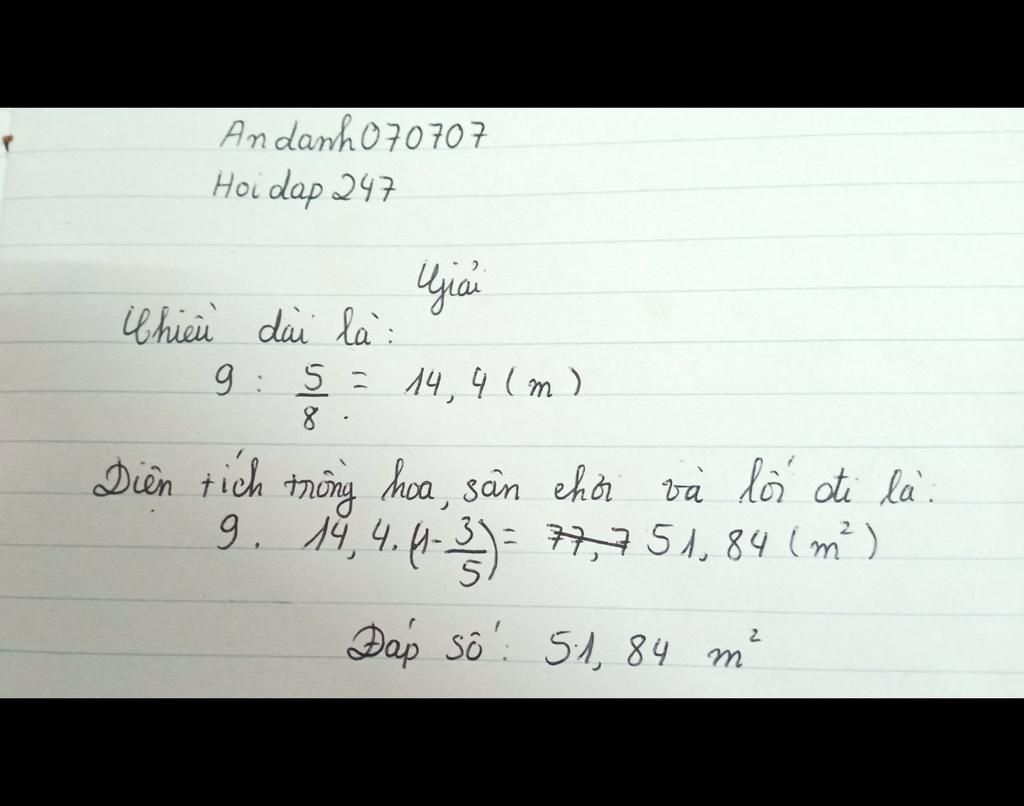 Andanh070707
Hoidap247
Giải
Chiều dài là:
9 : 5/8 = 14,4 (m)
Diện tích trồng hoa, sân chơi và lối đi là:
9. 14,4.(1-3/5)= 77,7 51,84 (m²)
Đáp số: 51,84 m²